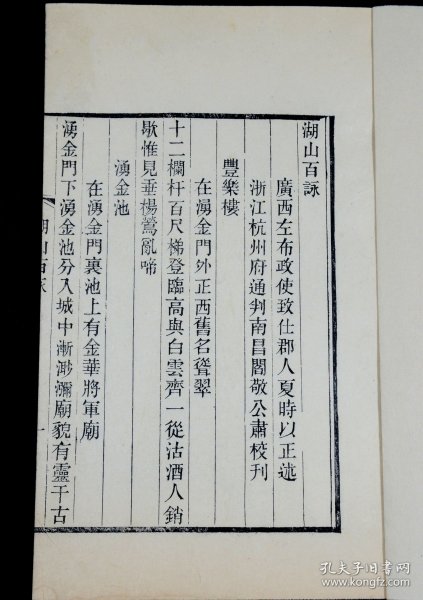 湖山百詠
廣西左布政使致仕郡人夏時以正述
浙江杭州府通判南昌閻敬公肅校刊
豐樂樓
在湧金門外正西舊名聳翠
十二欄杆百尺梯登臨高與白雲齊一從沽酒人銷
歇惟見垂楊鶯亂啼
湧金池
在湧金門裏池上有金華將軍廟
湧金門下湧金池分入城中漸渺瀰廟貌有靈千古
湖山百詠
一
孔夫子旧书网
www.kongfz.com